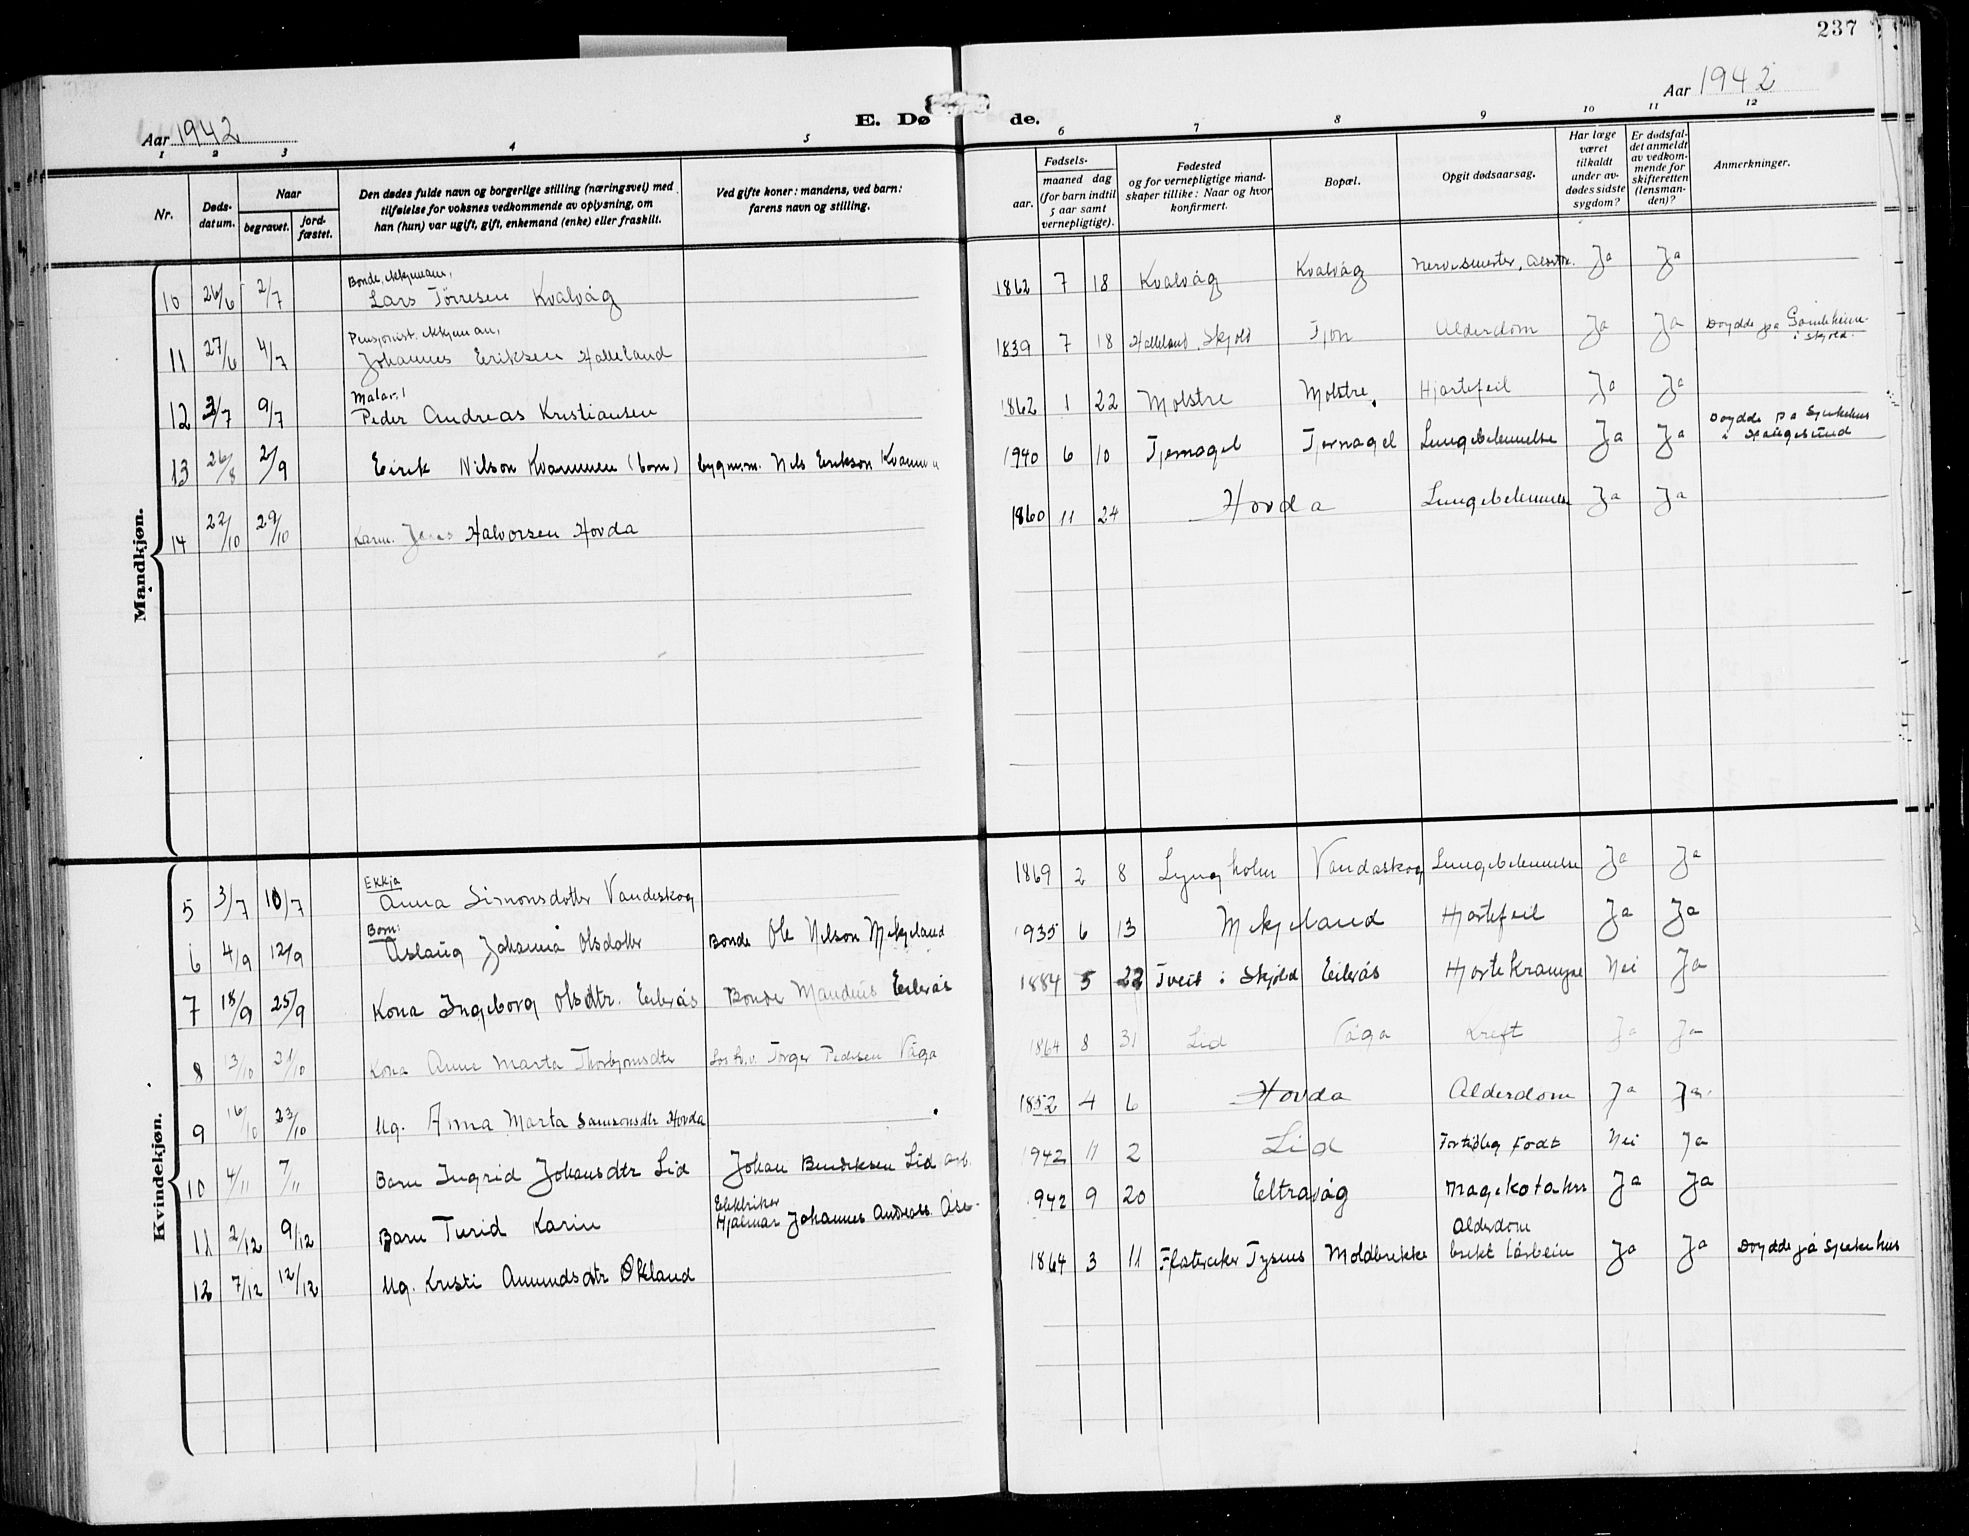 237
Aar 1942
E. Døde.
Aar 1942
1 2 3 4 5 6 7 8 9 10 11 12
Nr.
Døds-datum.
Naar
begravet.
jord-fæstet.
Den dødes fulde navn og borgerlige stilling (næringsvei) med tilføielse for voksnes vedkommende av oplysning, om han (hun) var ugift, gift, enkemand (enke) eller fraskilt.
Ved gifte koner: mandens, ved barn: farens navn og stilling.
Fødsels-
aar.
maaned dag
(for barn indtil 5 aar samt vernepligtige).
Fødested og for vernepligtige mandskaper tillike: Naar og hvor konfirmert.
Bopæl.
Opgit dødsaarsag.
Har læge været tilkaldt under avdødes sidste sygdom?
Er dødsfaldet anmeldt av vedkommende for skifteretten (lensmanden)?
Anmerkninger.
Mandkjøn.
Bonde, ekkjemann,
10 26/6 2/7 Lars Tørresen Kvalvåg 1862 7 18 Kvalvåg Kvalvåg Ja Ja
Pensjonist. ekkjeman,
11 27/6 4/7 Johannes Eriksen Halleland 1839 7 18 Halleland, Skjold Tjøn Alderdom Ja Ja Døydde på Gamleheime i Skjold.
Malar,
12 3/7 9/7 Peder Andreas Kristiansen 1862 1 22 Molstre Molstre Hjartefeil Ja Ja
13 26/8 2/9 Eirik Nilson Kvammen (born) bygnm. Nils Erikson Kvammen 1940 6 10 Tjernagel Tjernagel Lungebetennelse Ja Ja Døydde på Sjukehus i Haugesund
14 22/10 29/10 Karm. Jens Halvorsen Hovda 1860 11 24 Hovda Lungebetennelse Ja Ja
Kvindekjøn.
Ekkja
5 3/7 10/7 Anna Simonsdotter Vandaskog 1869 2 8 Lyngholm Vandaskog Lungebetennelse Ja Ja
Born:
6 4/9 12/9 Aslaug Johanna Olsdotter Bonde Ole Nilson Mekjeland 1935 6 13 Mekjeland Hjartefeil Ja Ja
7 18/9 25/9 Kona Ingeborg Olsdtr. Eilerås Bonde Mandius Eilerås 1884 5 22 Tveit i Skjold Eilerås Hjartekrampe Nei Ja
8 13/10 21/10 Kona Anne Marta Thorbjørnsdtr Torger Pedersen Våga 1864 8 31 Lid Våga Kreft Ja Ja
9 16/10 23/10 Ug. Anna Marta Samsonsdtr Hovda 1852 4 6 Hovda Alderdom Ja Ja
10 4/11 7/11 Barn Ingrid Johansdtr Lid Johan Bendiksen Lid arb. 1942 11 2 Lid Fortidleg født Nei Ja
11 2/12 9/12 Barn Turid Karin Elektriker Hjalmar Johannes Andreas Åse 942 9 20 Eltravåg Magekatarr Ja Ja
12 7/12 12/12 Ug. Kristi Amundsdtr Økland 1864 3 11 Tysnes Moldbrekke Alderdom brekt lårbein Ja Ja Døydde på Sjukehus